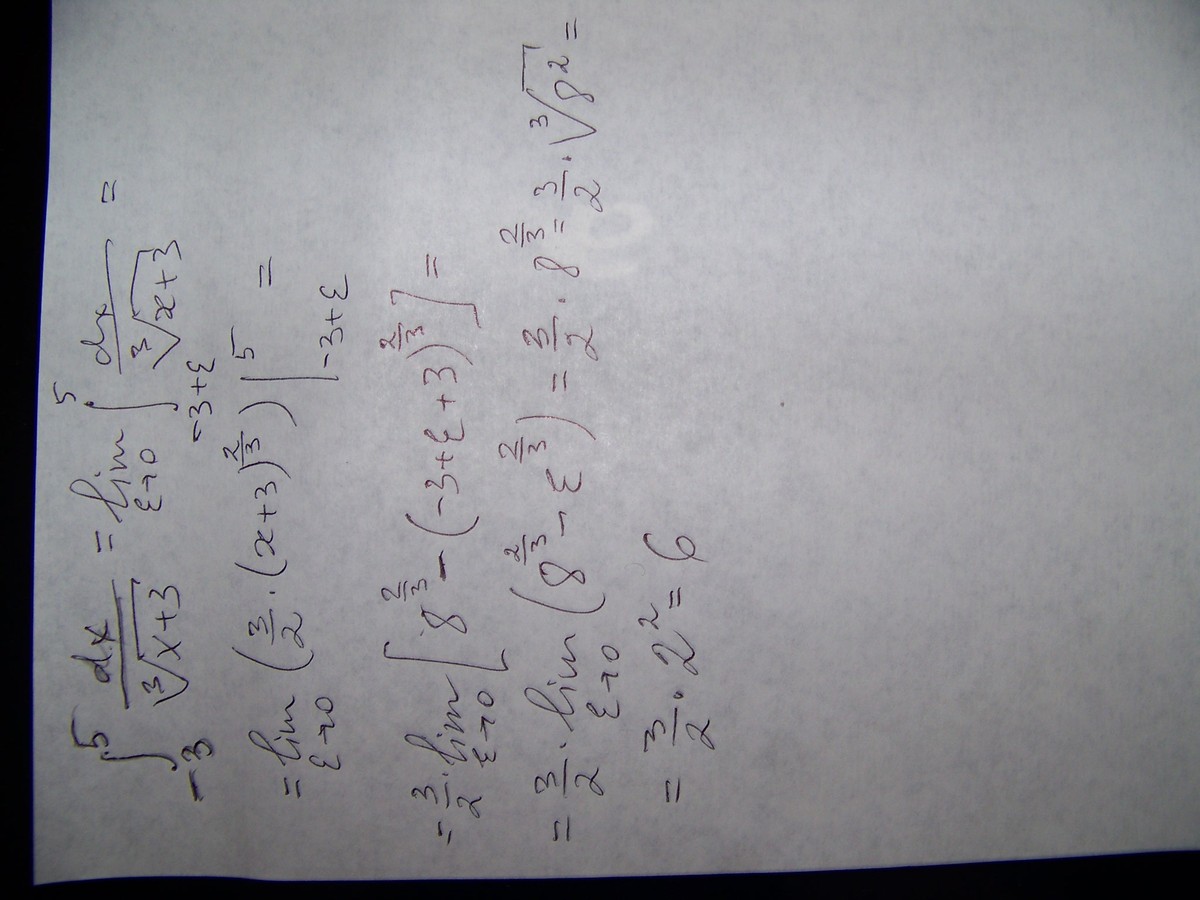 ∫_{-3}^{5} dx/∛(x+3) = lim_{ε→0} ∫_{-3+ε}^{5} dx/∛(x+3) =
= lim_{ε→0} (3/2 · (x+3)^{2/3}) |_{-3+ε}^{5} =
= 3/2 · lim_{ε→0} [8^{2/3} - (-3+ε+3)^{2/3}] =
= 3/2 · lim_{ε→0} (8^{2/3} - ε^{2/3}) = 3/2 · 8^{2/3} = 3/2 · ∛(8^2) =
= 3/2 · 2^2 = 6